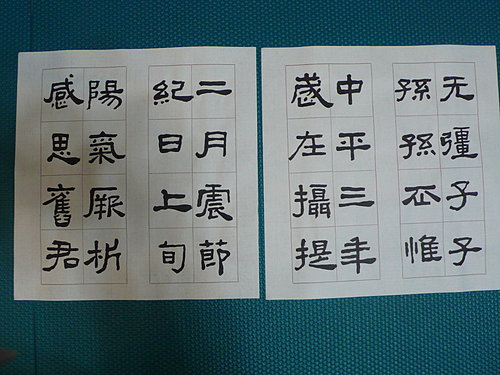 无疆子子
孫孫丕惟
中平三年
歲在攝提
二月震節
紀日上旬
陽氣厥析
感思舊君